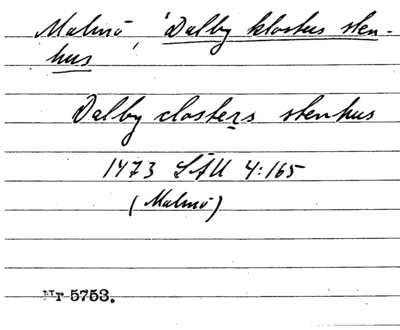 Malmö, 'Dalby klosters sten-
hus
Dalby closters stenhus
1473 LÄU 4:165
(Malmö)
Nr 5753.